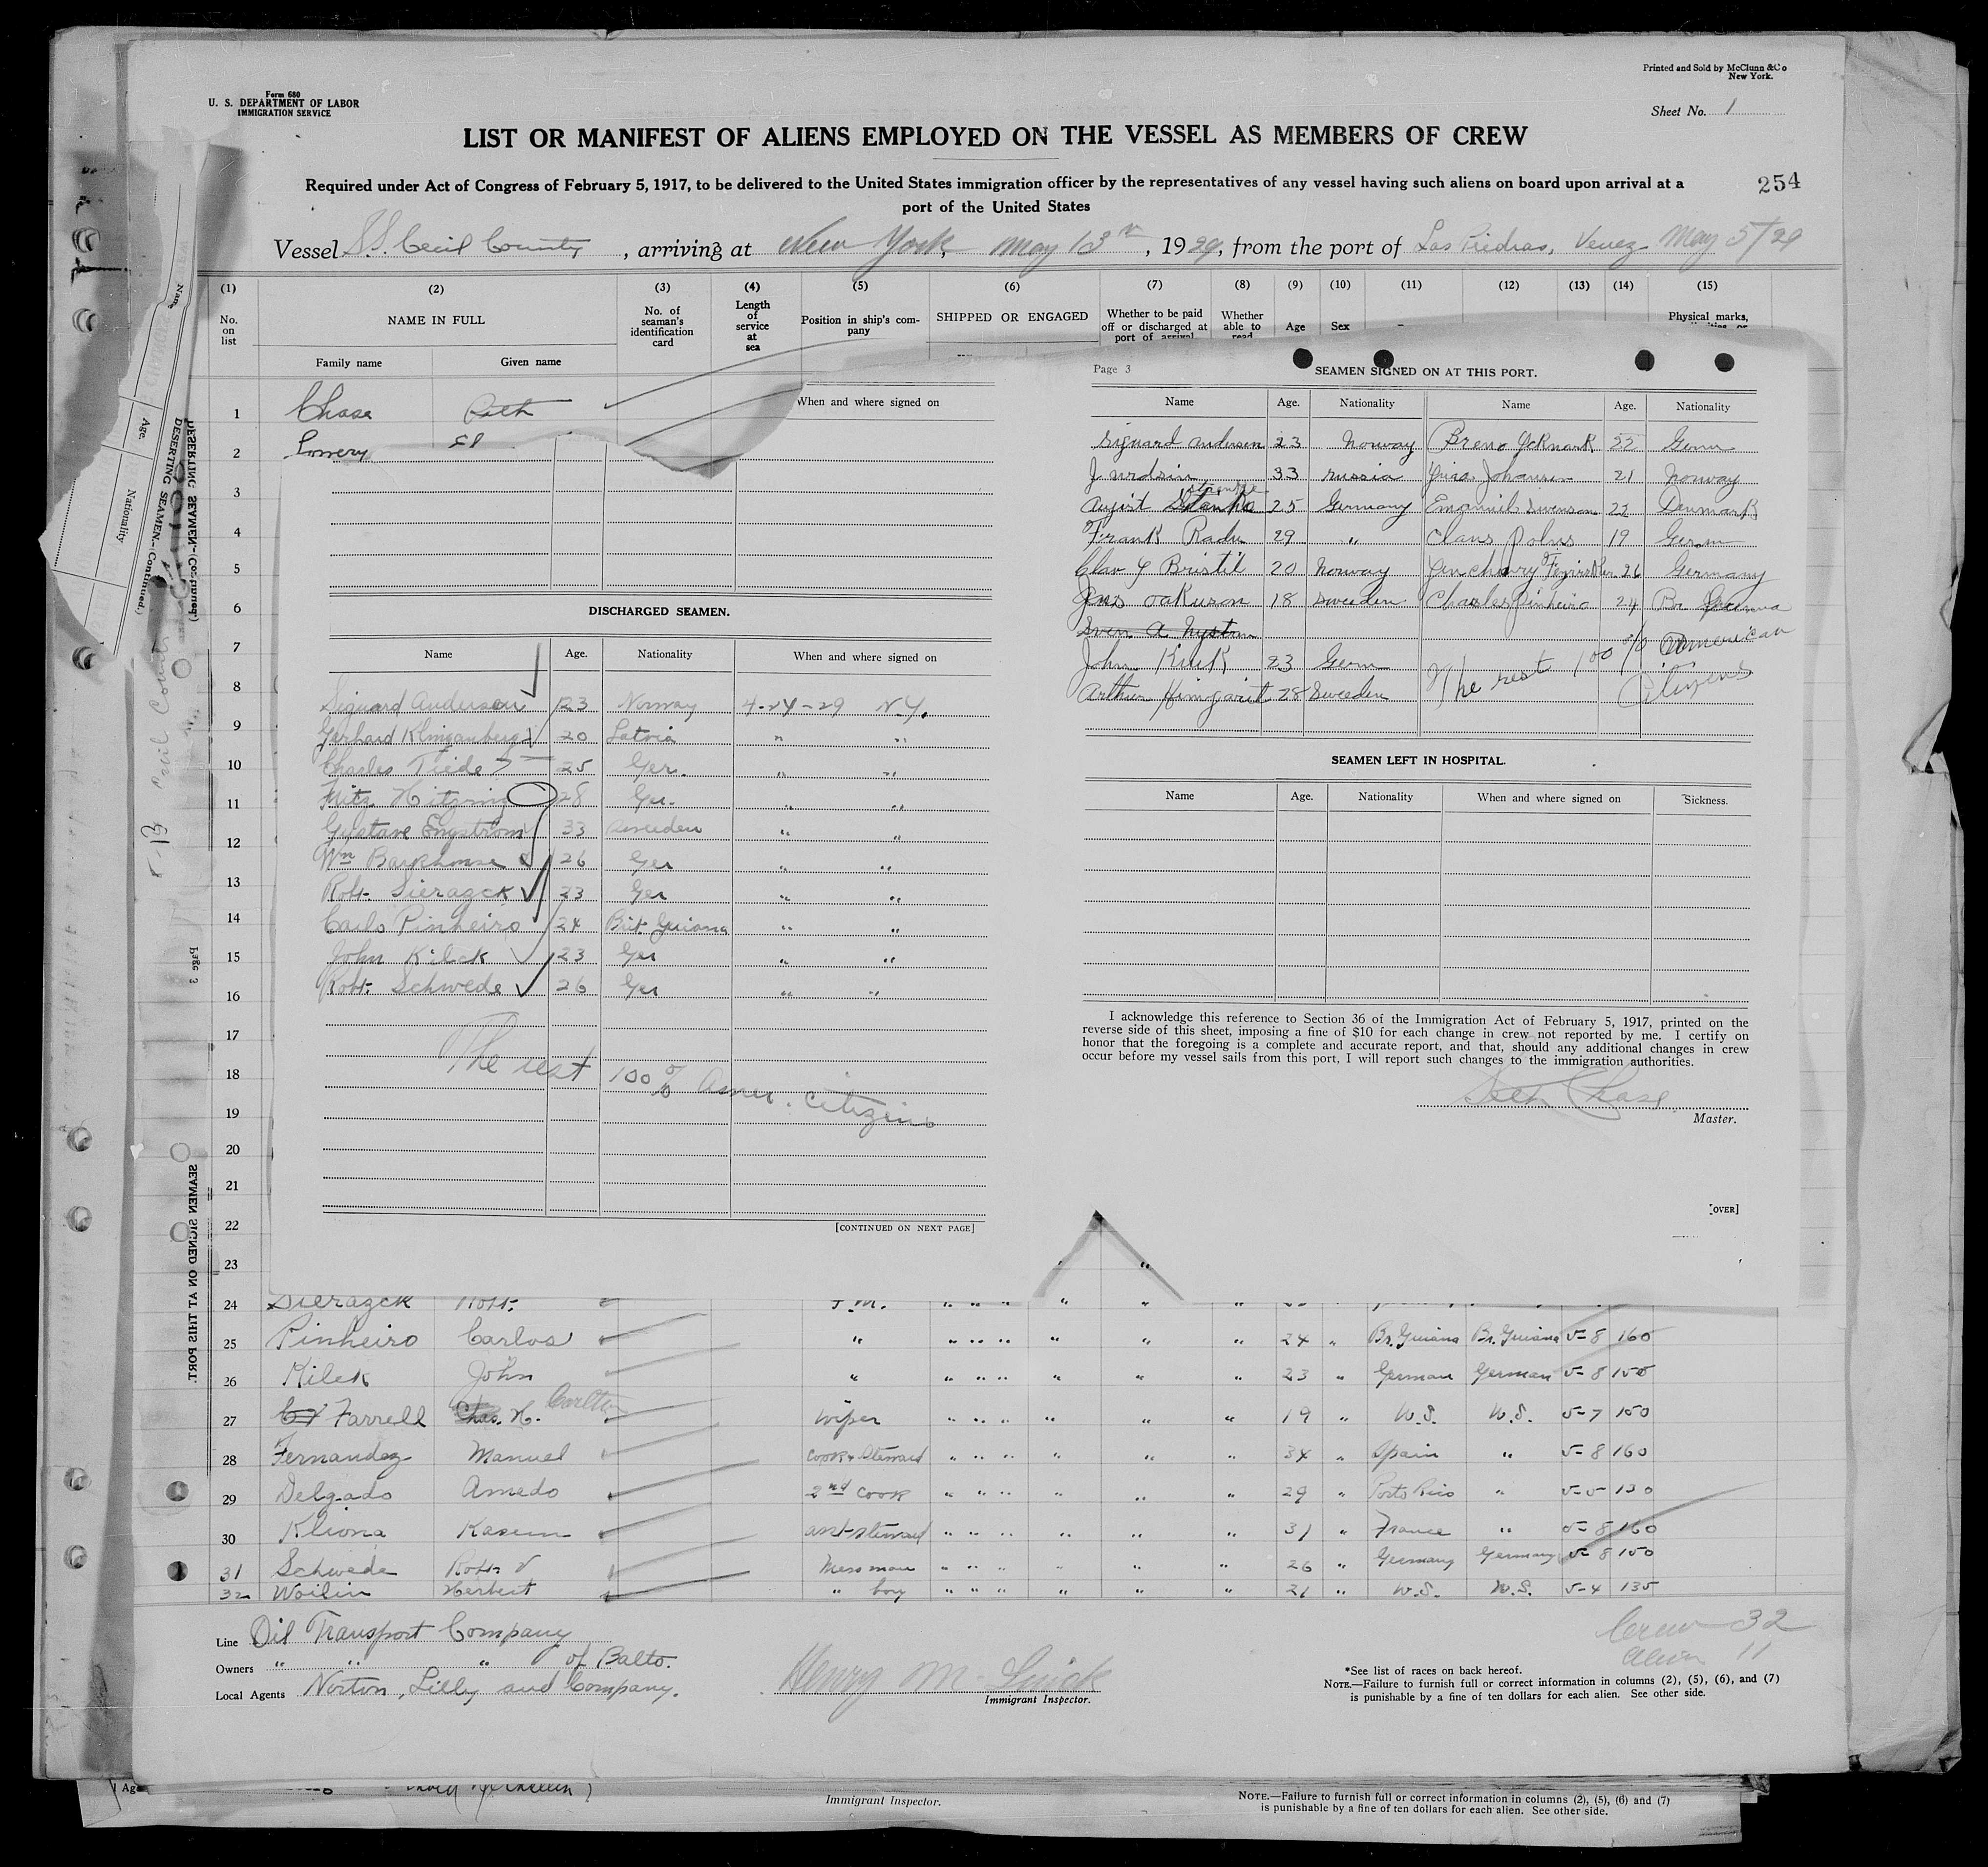 Form 680
U. S. DEPARTMENT OF LABOR
IMMIGRATION SERVICE
Printed and Sold by McClunn & Co
New York.
Sheet No. 1
LIST OR MANIFEST OF ALIENS EMPLOYED ON THE VESSEL AS MEMBERS OF CREW
Required under Act of Congress of February 5, 1917, to be delivered to the United States immigration officer by the representatives of any vessel having such aliens on board upon arrival at a
port of the United States
254
Vessel S.S. Cecil County, arriving at New York, May 13th, 1929, from the port of Las Piedras, Venez May 5/29
(1) (2) (3) (4) (5) (6) (7) (8) (9) (10) (11) (12) (13) (14) (15)
No. on list
NAME IN FULL
Family name Given name
No. of seaman's identification card
Length of service at sea
Position in ship's company
SHIPPED OR ENGAGED
Whether to be paid off or discharged at port of arrival
Whether able to read
Age
Sex
Physical marks,
1 Chase
2 Lowery
3
4
5
6
7
8
9
10
11
12
13
14
15
16
17
18
19
20
21
22
23
When and where signed on
DISCHARGED SEAMEN.
Name Age. Nationality When and where signed on
Siguard Anderson 23 Norway 4-24-29 N.Y.
Gerhard Klinganberg 20 Latvia " "
Charles Tiede 25 Ger. " "
Fritz Hitzing 28 Ger. " "
Gustave Engstrom 33 Sweeden " "
Wm Barkhouse 26 Ger " "
Robt. Sierazck 23 Ger " "
Carlo Pinheiro 24 Brit Guiana " "
John Kilek 23 Ger " "
Robt. Schwede 26 Ger " "
The rest 100% Amer. citizens
[CONTINUED ON NEXT PAGE]
Page 3
SEAMEN SIGNED ON AT THIS PORT.
Name Age. Nationality Name Age. Nationality
Siguard Andersen 23 Norway Breno 22 Germ
J 33 Russia Johansen 21 Norway
August 25 Germany Emanuil Swenson 22 Denmark
Frank Radu 29 " Claus Johns 19 Germ
Olav Y Bristil 20 Norway 26 Germany
18 Sweeden Charles Pinheiro 24 Br
Sven A Nystrom
John Kilek 23 Germ The rest 100% American
Arthur 28 Sweeden Citizens
SEAMEN LEFT IN HOSPITAL.
Name Age. Nationality When and where signed on Sickness.
I acknowledge this reference to Section 36 of the Immigration Act of February 5, 1917, printed on the
reverse side of this sheet, imposing a fine of $10 for each change in crew not reported by me. I certify on
honor that the foregoing is a complete and accurate report, and that, should any additional changes in crew
occur before my vessel sails from this port, I will report such changes to the immigration authorities.
Seth Chase
Master.
[OVER]
24 Sierazck Robt. F.M. " " " " " "
25 Pinheiro Carlos " " " " " " " 24 " Br. Guiana Br. Guiana 5-8 160
26 Kilek John " " " " " " " 23 " German German 5-8 150
27 Farrell Chas. H. Carlton Wiper " " " " " " 19 " U.S. U.S. 5-7 150
28 Fernandez Manuel Cook & Steward " " " " " " 34 " Spain " 5-8 160
29 Delgado Amedo 2nd Cook " " " " " " 29 " Porto Rico " 5-5 130
30 Kliona Kasem asst steward " " " " " " 31 " France " 5-8 160
31 Schwede Robt Messman " " " " " " 26 " Germany Germany 5-8 150
32 Woilin Herbert " boy " " " " " " 21 " U.S. U.S. 5-4 135
Line Oil Transport Company
Owners " " " of Balto.
Local Agents Norton, Lilly and Company.
Immigrant Inspector.
Crew 32
Alien 11
*See list of races on back hereof.
NOTE.—Failure to furnish full or correct information in columns (2), (5), (6), and (7)
is punishable by a fine of ten dollars for each alien. See other side.
Name
Age.
Nationality
DESERTING SEAMEN—(Continued.)
DESERTING SEAMEN—(Continued)
5-13 Cecil County
Page 3
SEAMEN SIGNED ON AT THIS PORT.
Immigrant Inspector.
NOTE.—Failure to furnish full or correct information in columns (2), (5), (6) and (7)
is punishable by a fine of ten dollars for each alien. See other side.